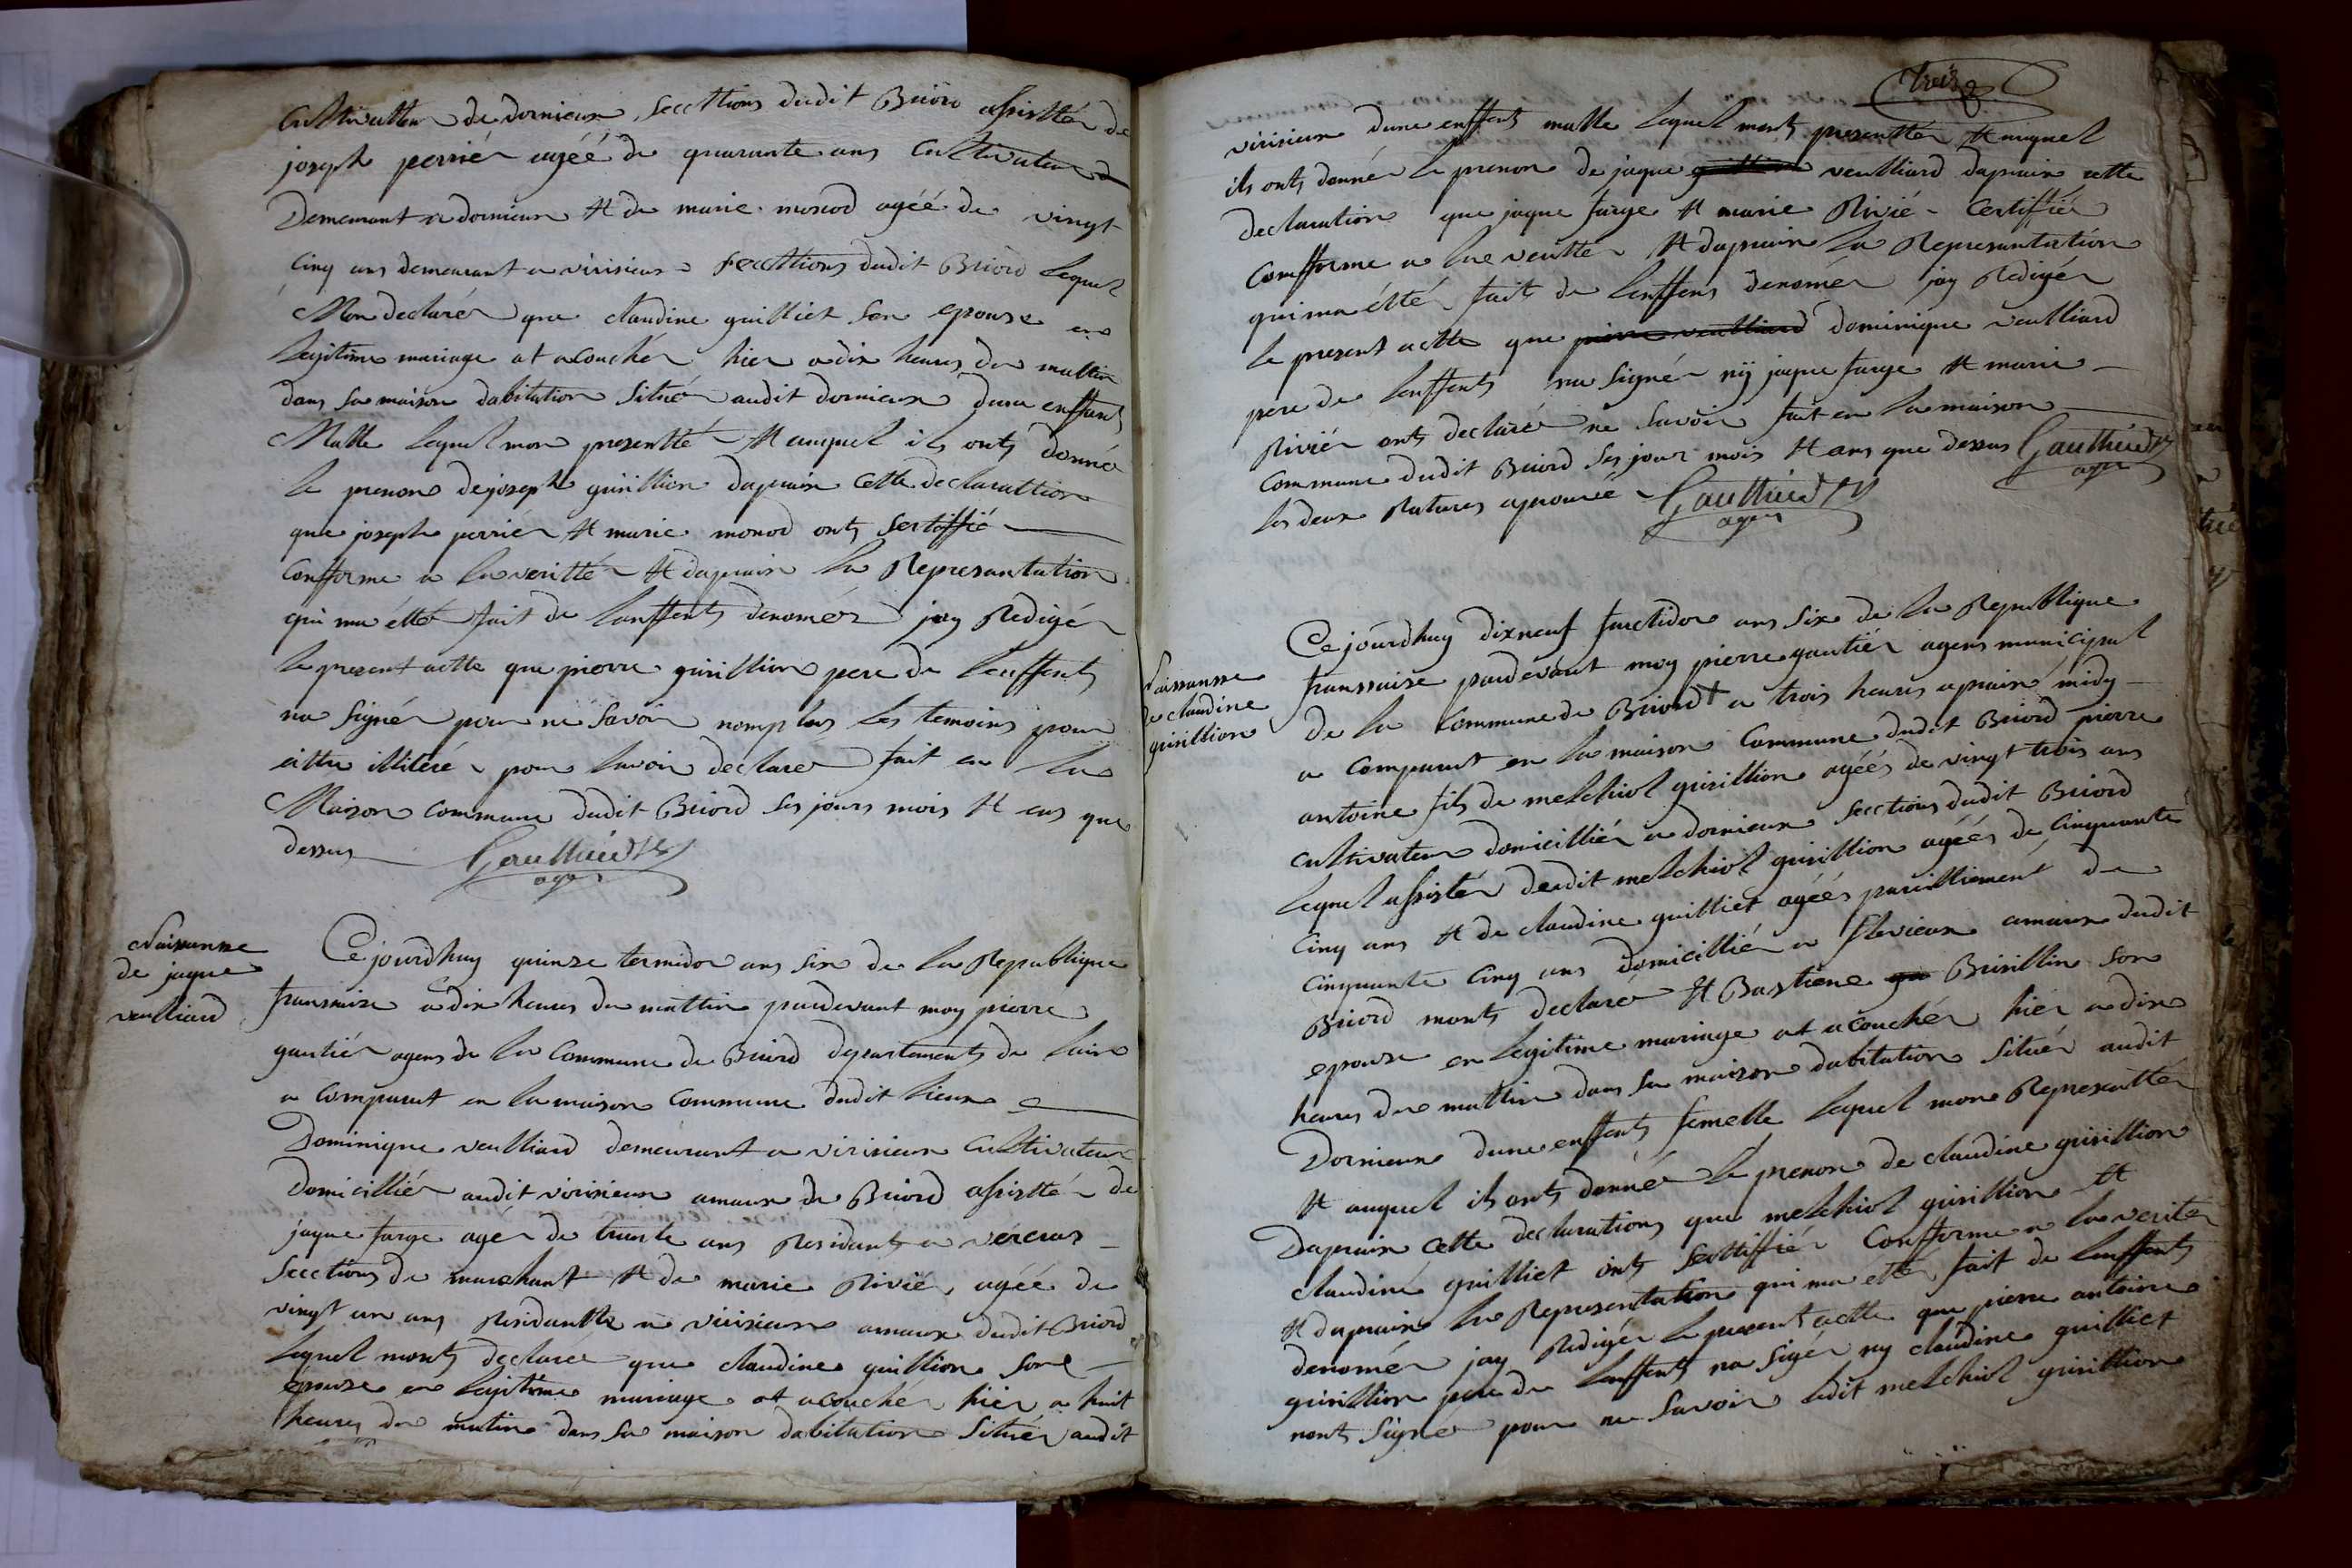 Cultivatteur de dornieux secttions dudit Briord assisttér de
joseph perriér agéé de quarante ans Cultivateur
Demeurant a dornieux & de marie monod agéé de vingt
Cinq ans demeurant a virisieux secttions dudit Briord lequel
Mon declarér que claudine guilliet son epouse en
legitime mariage at acouchér hier a dix heures du mattin
dans sa maison dabitation situér audit dornieux dune enffent
Malle lequel mon presentté & auquel ils onts donné
le prenon de joseph guirillion daprain cette declarattion
que joseph perriér & marie monod onts serttiffié
Confforme a la veritté & daprain la Represantation
qui ma étté fait de lanffents denomér jay Redigér
le present actte que pierre guirillion pere de lenffents
na signér pour ne savoir nomplus les temoins pour
aittre illitéré pour lavoir declarer fait en la
Maison commune dudit Briord les jours mois & ans que
dessus Gauthier
agen
Naissansse
de jaque
veulliard
Ce jourdhuy quinze termidor ans six de la Republique
fransaise a dix heures du mattin pardevant moy pierre
gautiér agens de la Commune de Briord departements de lain
a comparut en la maison Commune dudit lieux
Dominique veulliard demeurant a virisieux Cultivateur
Domicilliér audit virisieux amaux de Briord assisttér de
jaque farge agér de trante ans Residants a vercras
Secctions de marchant & de marie Rivié, agéé de
vingt un ans Residantte a virisieux amaux dudit Briord
lequel monts declarer que claudine guillion sone
epouse en legitime mariage at acouchér hier a huit
heures du matin dans sa maison dabitation situér audit
trois
virisieux dune enffents malle lequel monts presenttér & auquel
ils onts donnér le prenon de jaque veulliard daprain cette
declaration que jaque farge & marie Rivié Certiffiér
Comfforme a la veritté & daprain la Represantation
qui ma éttér fait de lenffens denomér jay Redigér
le present actte que pierre veulliard dominique veulliard
pere de lenffents na signér nÿ jaque farge & marie
Riviér onts declarér ne savoir fait en la maison
Commune dudit Briord les jour mois & ans que dessus Gauthier
agen
les deux Ratures aprouvéé Gauthier
agen
Naissansse
de claudine
guirillion
Ce jourdhuy dixneuf fructidor ans six de la Republique
fransaise pardevant moy pierre gautiér agens municipal
de la Commune de Briord a trois heures aprain midy
a comparut en la maison Commune dudit Briord pierre
antoine fils de melchiol guirillion agéés de vingt trois ans
Cultivateur domicilliér a dornieux secctions dudit Briord
lequel assistér dudit melchiol guirillion agéés de Cinquante
Cinq ans & de claudine guilliet agéés pareilliement de
Cinquante Cinq ans domicilliér a flevieux amaux dudit
Briord monts declarér & Bastiene Brisillin son
epouse en legitime mariage at acouchér hier a dix
heures du mattin dans sa maison dabitation situér audit
Dornieux dune enffents femelle lequel mon Represanttér
& auquel ils onts donnér le prenon de claudine guirillion
Daprain Cette declarations que melchiol guirillion &
claudine guilliet onts serttiffiér Confforme a la veritér
& daprain la Representation qui ma éttér fait de lanffents
denomér jay Redigér le present actte que pierre antoine
guirillion pere de lenffents na sigér ny claudine guilliet
nonts signér pour ne savoir ledit melchiol guirillion